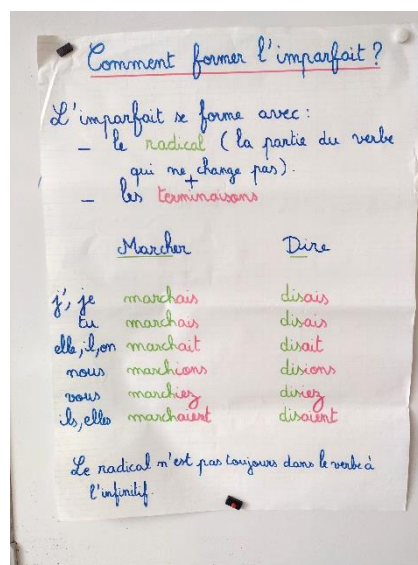 Comment former l'imparfait ?
L'imparfait se forme avec :
– le radical (la partie du verbe
qui ne change pas).
+
– les terminaisons
Marcher Dire
j', je marchais disais
tu marchais disais
elle, il, on marchait disait
nous marchions disions
vous marchiez disiez
ils, elles marchaient disaient
Le radical n'est pas toujours dans le verbe à
l'infinitif.